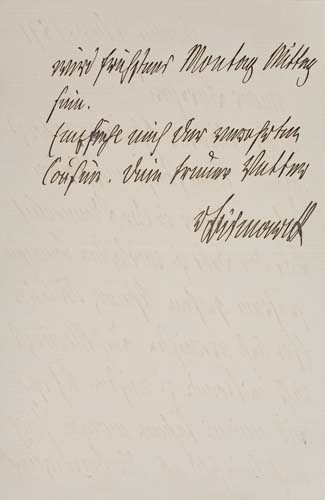 wird frühstens Montag Mittag
sein.
Empfiehl mich der verehrten
Cousine. Dein treuer Vetter
v Bismarck